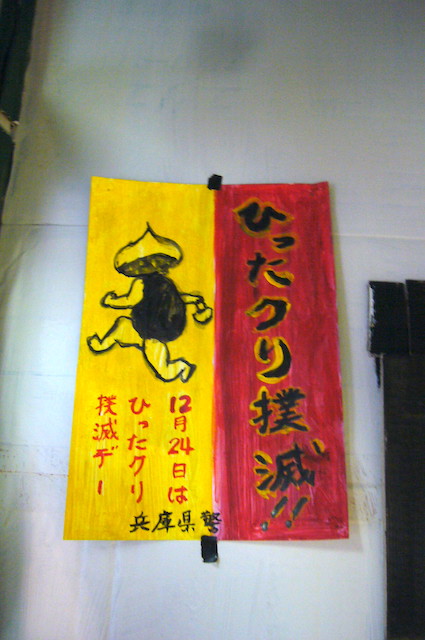 ひったクリ撲滅!!
12月24日は
ひったクリ
撲滅デー
兵庫県警